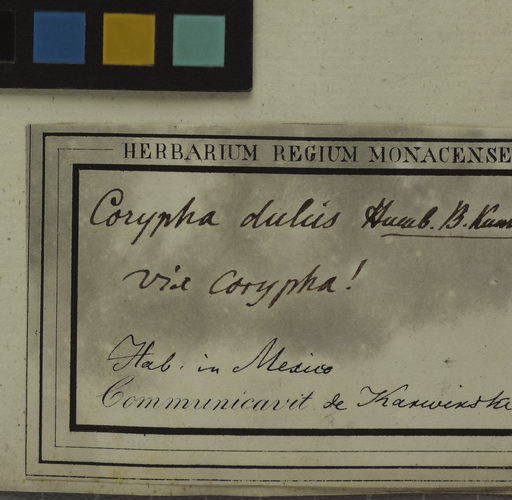 HERBARIUM REGIUM MONACENSE
Corypha dulcis Humb. B. Kun
vix Corypha!
Hab. in Mexico
Communicavit de Karwinski